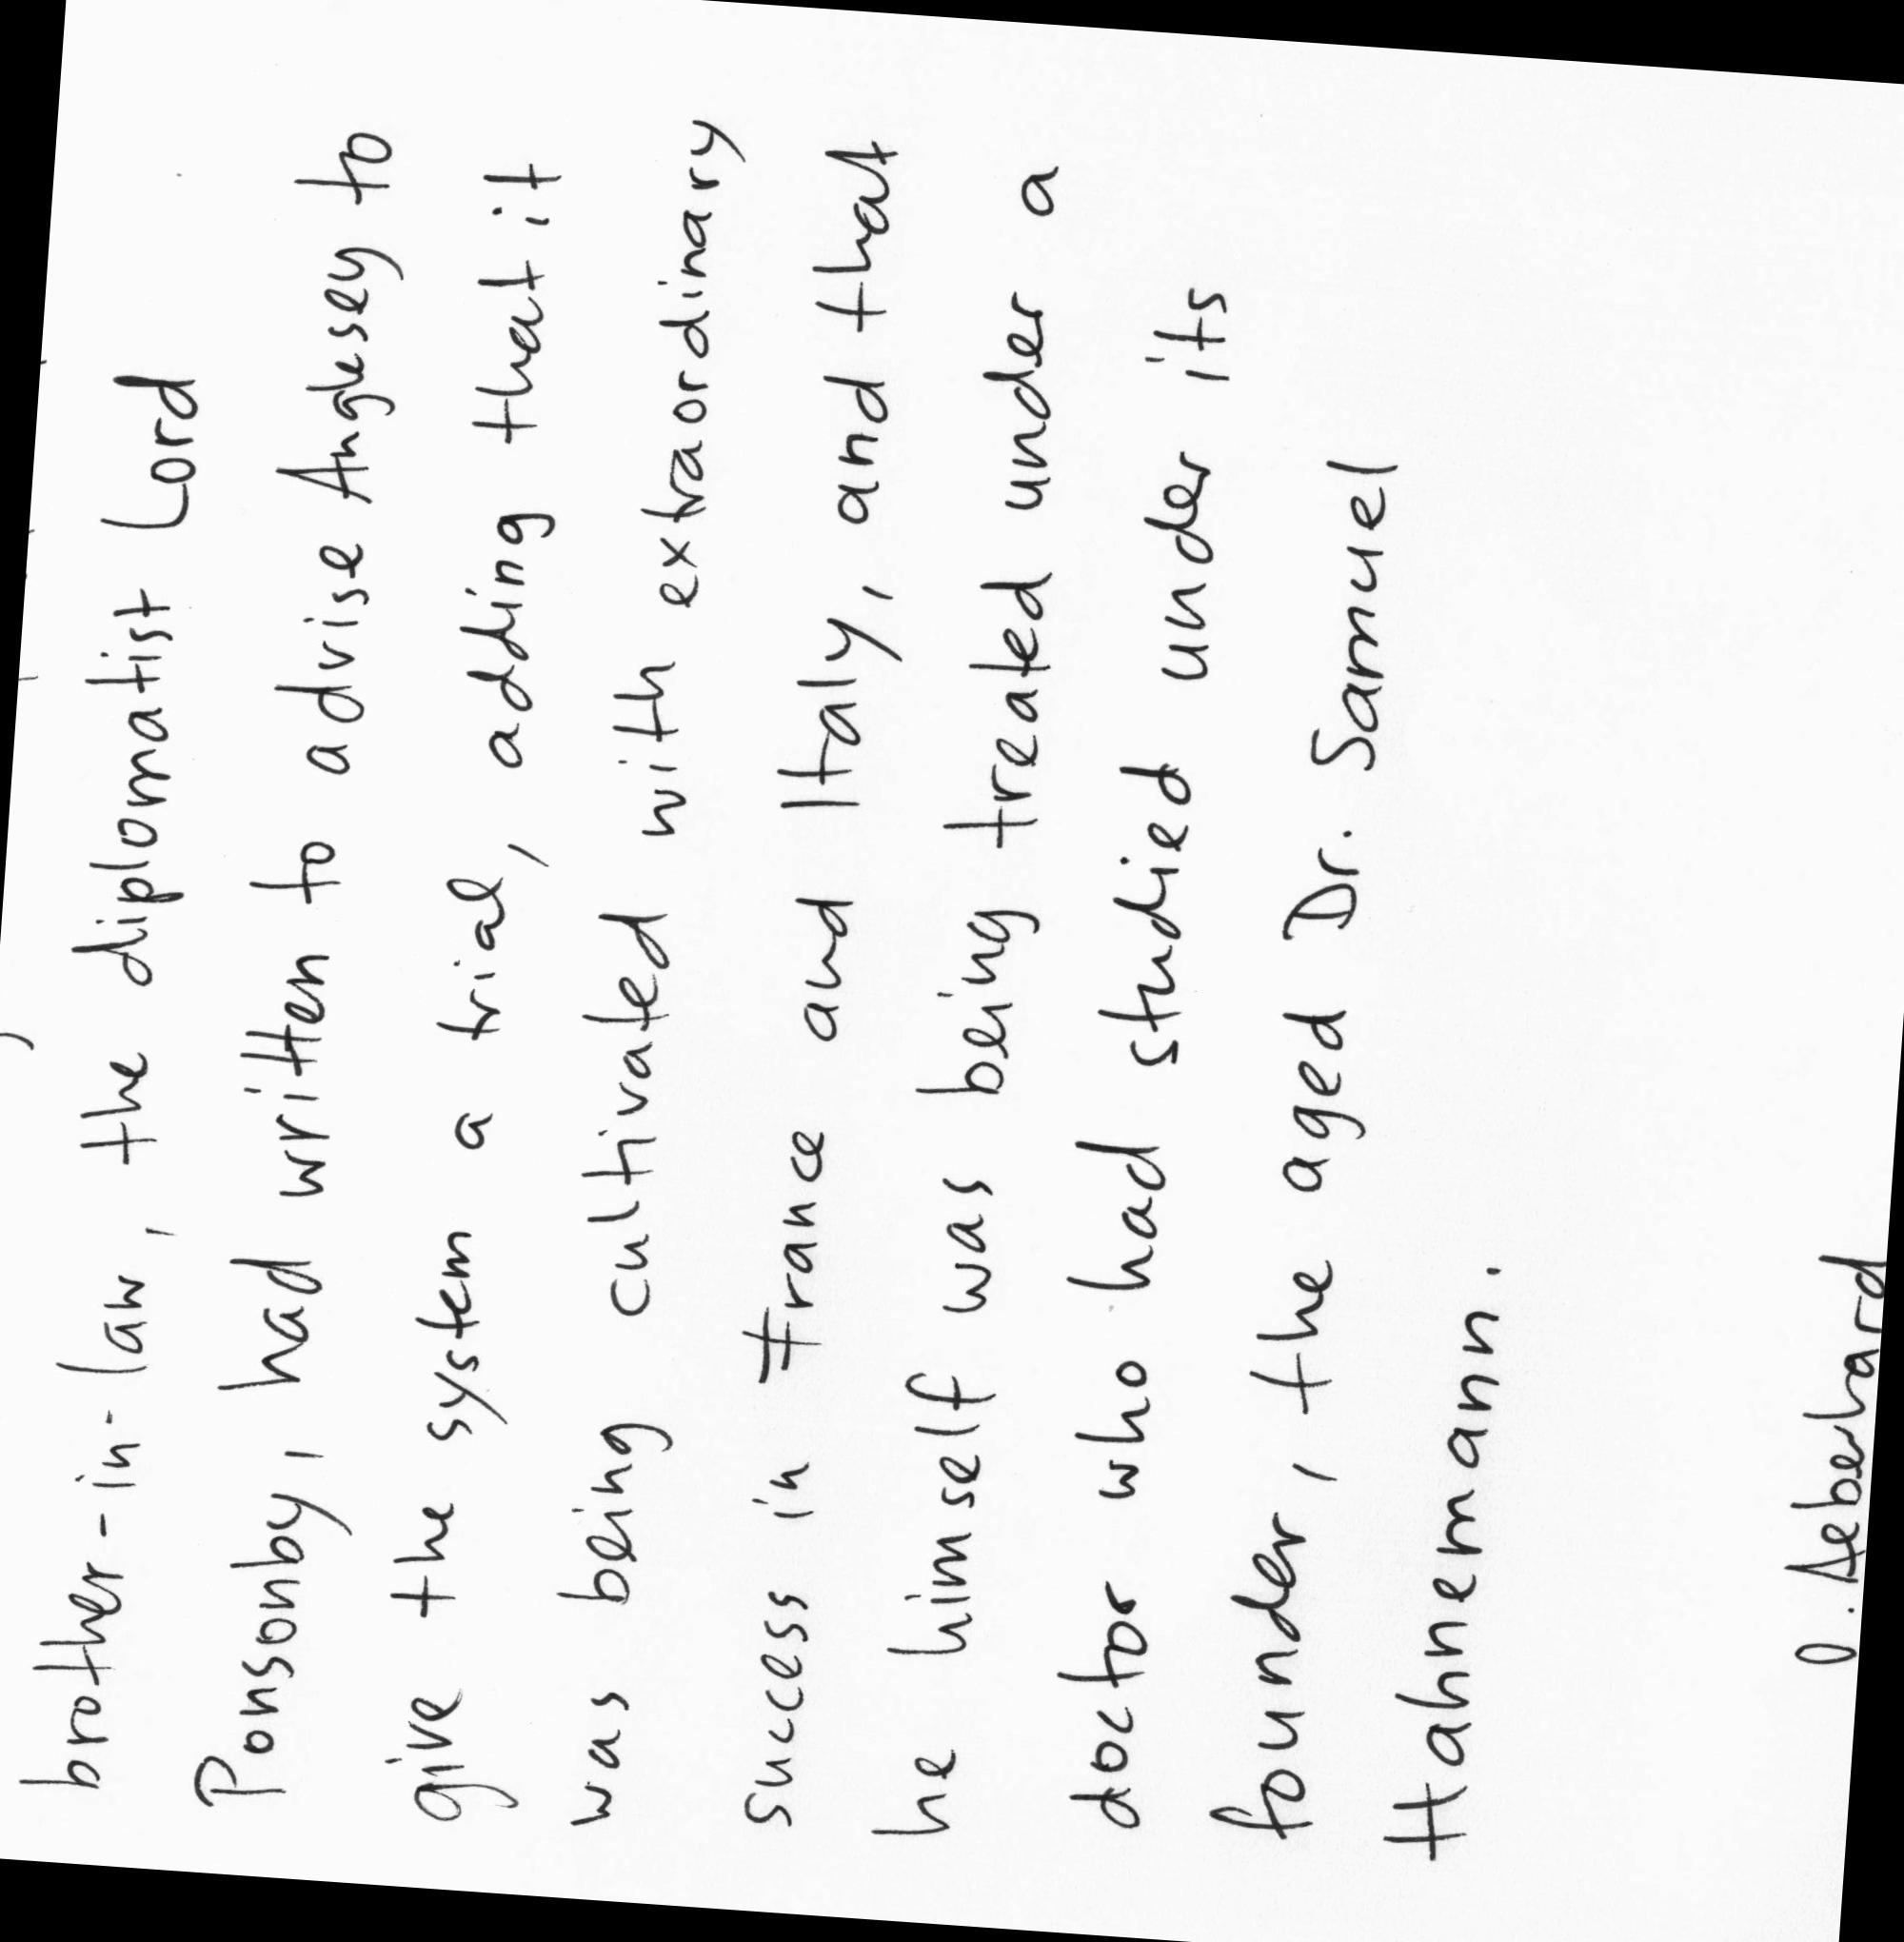 brother-in-law, the diplomatist Lord
Ponsonby, had written to advise Anglesey to
give the system a trial, adding that it
was being cultivated with extraordinary
success in France and Italy, and that
he himself was being treated under a
doctor who had studied under its
founder, the aged Dr. Samuel
Hahnemann.
D. Aeberhard